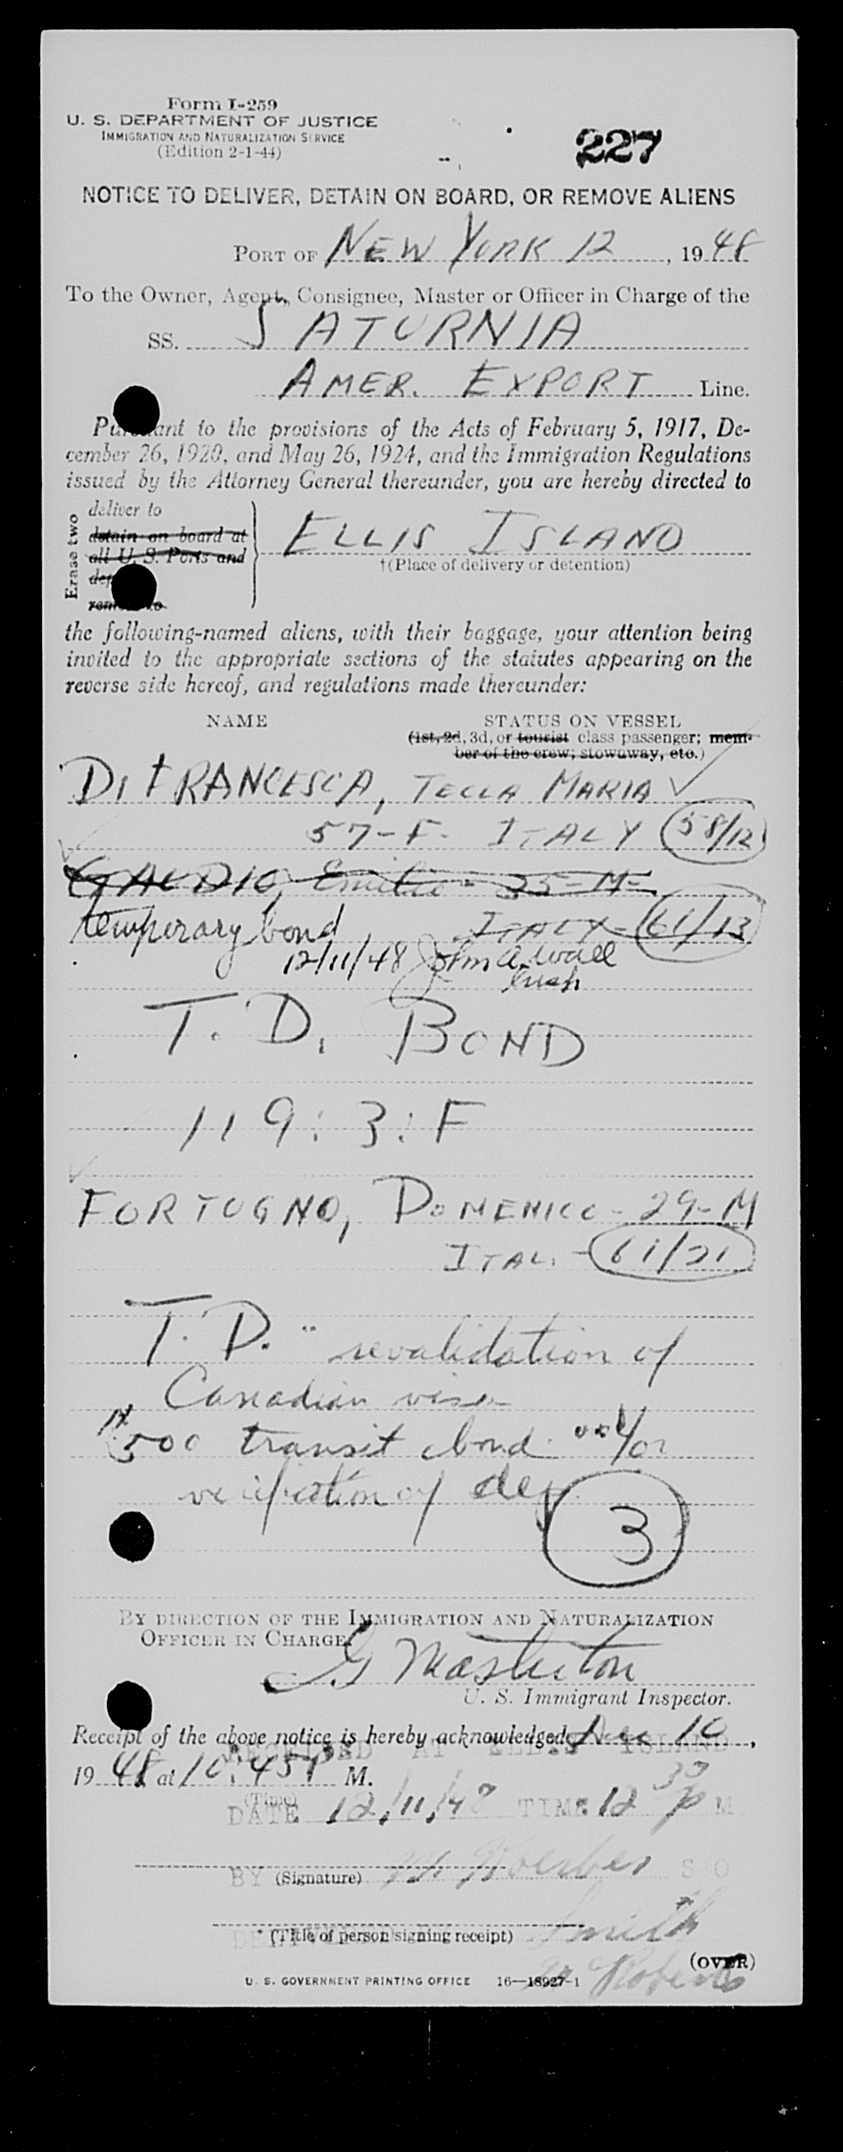 Form I-259
U. S. DEPARTMENT OF JUSTICE
IMMIGRATION AND NATURALIZATION SERVICE
(Edition 2-1-44)
227
NOTICE TO DELIVER, DETAIN ON BOARD, OR REMOVE ALIENS
PORT OF NEW YORK 12, 1948
To the Owner, Agent, Consignee, Master or Officer in Charge of the
SS. SATURNIA
AMER. EXPORT Line.
Pursuant to the provisions of the Acts of February 5, 1917, De-
cember 26, 1920, and May 26, 1924, and the Immigration Regulations
issued by the Attorney General thereunder, you are hereby directed to
Erase two
deliver to
detain on board at
all U. S. Ports and
remove to
ELLIS ISLAND
†(Place of delivery or detention)
the following-named aliens, with their baggage, your attention being
invited to the appropriate sections of the statutes appearing on the
reverse side hereof, and regulations made thereunder:
NAME STATUS ON VESSEL
(1st, 2d, 3d, or tourist class passenger; mem-
ber of the crew; stowaway, etc.)
DI FRANCESCA, TECLA MARIA
57-F- ITALY 58/12
GAUDIO, Emilio - 35-M-
temporary bond ITALY - 61/13
12/11/48 John A. Wall
T. D. BOND
119:3:F
FORTUGNO, DOMENICO - 29-M
ITAL. - 61/21
T. D. revalidation of
Canadian visa
500 transit bond &/or
verification of
3
BY DIRECTION OF THE IMMIGRATION AND NATURALIZATION
OFFICER IN CHARGE.
G Masterton
U. S. Immigrant Inspector.
Receipt of the above notice is hereby acknowledged, Dec 10,
1948 at 10:45 P M.
(Time)
RECEIVED AT ELLIS ISLAND
DATE 12/11/48 TIME 12 30 P M
BY (Signature) S O
(Title of person signing receipt) Smith
(OVER)
U. S. GOVERNMENT PRINTING OFFICE 16—18927-1